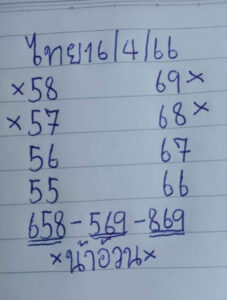 ไทย16/4/66
×58 69×
×57 68×
56 67
55 66
658-569-869
×น้าอ้วน×